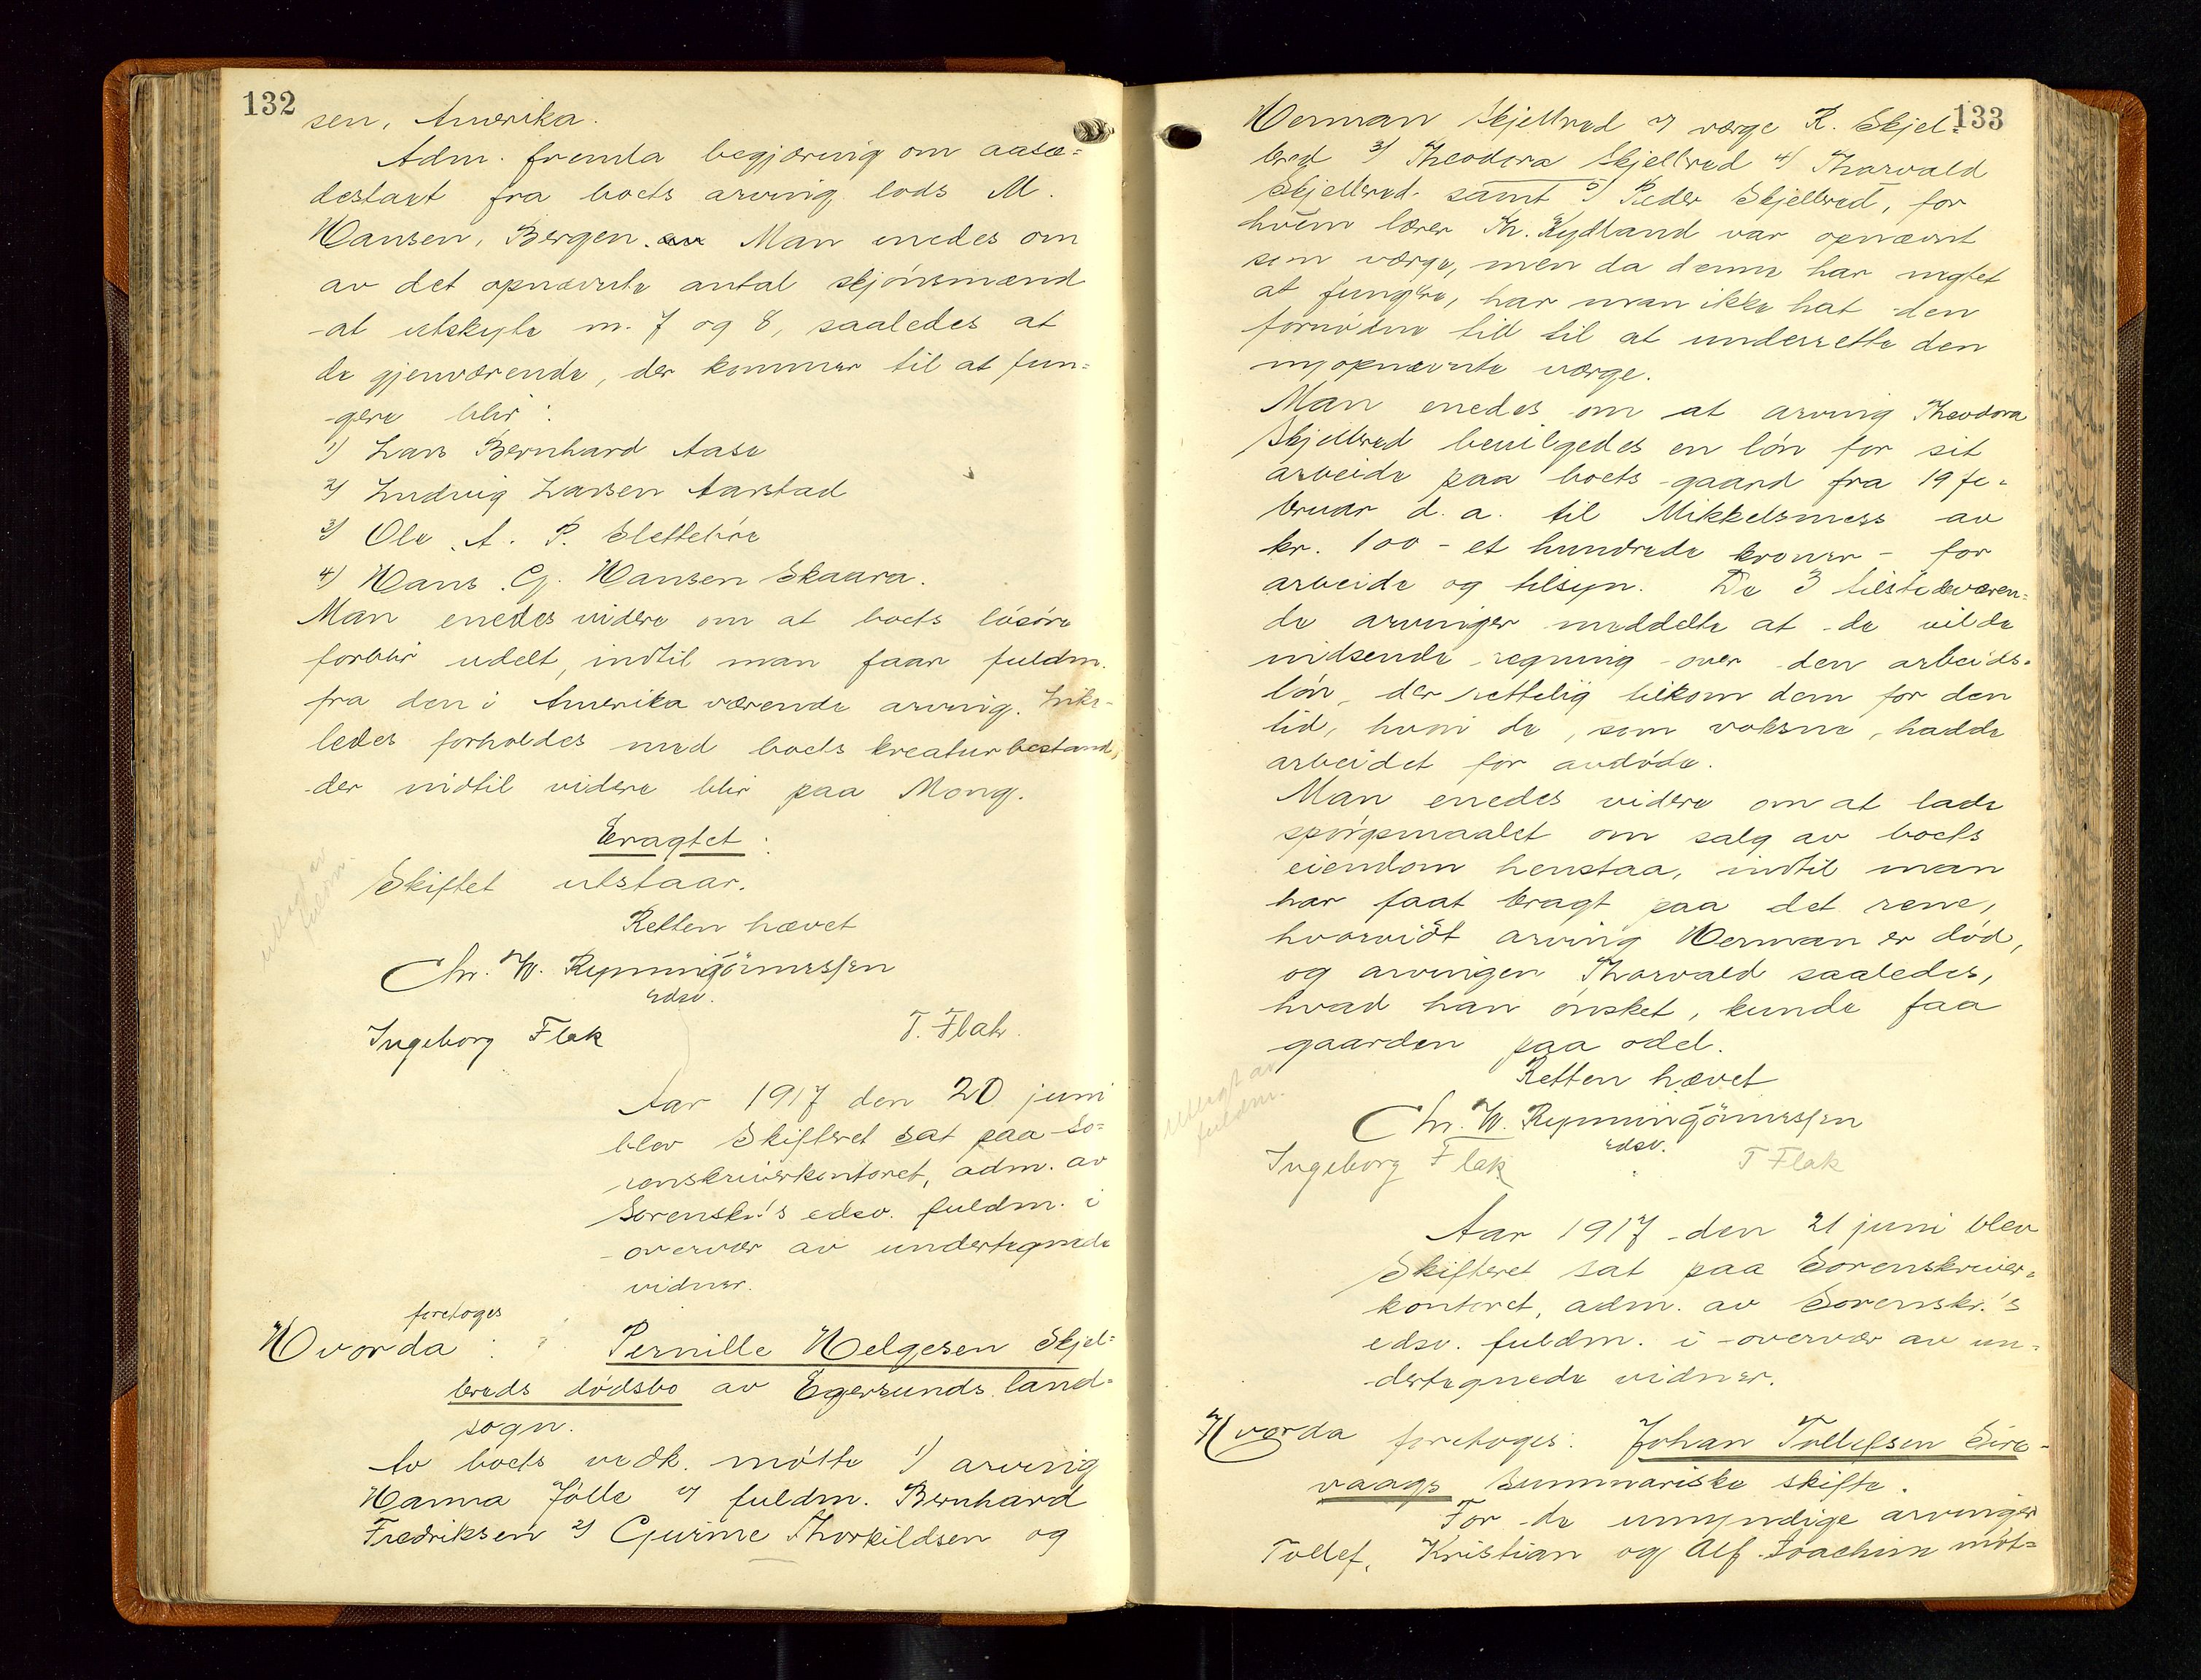 132
sen, Amerika.
Adm. fremla begjæring om aasæ=
destakt fra boets arving lods M.
Hansen, Bergen. Man enedes om
av det opnævnte antal skjönsmænd
at utskyte nr. 7 og 8, saaledes at
de gjenværende, der kommer til at fun=
gere blir:
1) Lars Bernhard Aase
2) Ludvig Larsen Aarstad
3) Ole A. P. Sletteböe
4) Hans G. Hansen Skaara.
Man enedes videre om at boets lösöre
forblir udelt, indtil man faar fuldm.
fra den i Amerika værende arving. Like-
ledes forholdes med boets kreaturbestand,
der indtil videre blir paa Mong.
Eragtet:
Skiftet utstaar.
utlagt av
fuldm.
Retten hævet
Chr. W. Rynning Tönnessen
edsv.
Ingeborg Flak T. Flak.
Aar 1917 den 20 juni
blev Skifteret sat paa So=
renskriverkontoret, adm. av
Sorenskr.'s edsv. fuldm. i
overvær av undertegnede
vidner.
foretoges
Hvorda: Pernille Helgesen Skjel=
breds dödsbo av Egersunds land=
sogn.
Av boets vedk. mötte 1) arving
Hanna Jölle v/ fuldm. Bernhard
Fredriksen 2) Gurine Thorkildsen og
133
Herman Skjelbred v/ værge R. Skjel=
bred 3) Theodora Skjelbred 4) Tharvald
Skjelbred samt 5) Peder Skjelbred, for
hvem lærer Kr. Kydland var opnævnt
som værge, men da denne har negtet
at fungere, har man ikke hat den
fornödne tid til at underrette den
nyopnævnte værge.
Man enedes om at arving Theodora
Skjelbred bevilgedes en lön for sit
arbeide paa boets gaard fra 19 fe=
bruar d. a. til Mikkelsmess av
kr. 100 - et hundrede kroner - for
arbeide og tilsyn. De 3 tilstedeværen=
de arvinger meddelte at de vilde
indsende regning over den arbeids=
lön, der rettelig tilkom dem for den
tid, hvori de, som voksne, hadde
arbeidet for avdöde.
Man enedes videre om at lade
spörgsmaalet om salg av boets
eiendom henstaa, indtil man
har faat bragt paa det rene,
hvorvidt arving Herman er död,
og arvingen Thorvald saaledes,
hvad han önsket, kunde faa
gaarden paa odel.
Retten hævet
utlagt av
fuldm.
Chr. W. Rynning Tönnessen
edsv.
Ingeborg Flak T Flak
Aar 1917 den 21 juni blev
Skifteret sat paa Sorenskriver=
kontoret, adm. av Sorenskr.'s
edsv. fuldm. i overvær av un=
dertegnede vidner.
Hvorda foretoges: Johan Tollefsen Sire-
vaags summariske skifte.
For de umyndige arvinger
Tollef, Kristian og Alf Joachim möt=